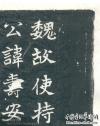 魏故使持
公諱壽安